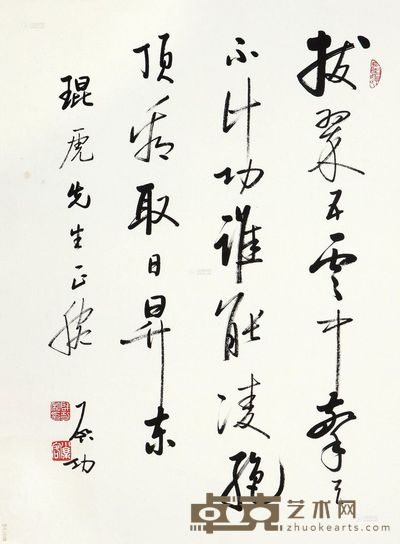 拔翠五雲中擎天
不计功誰能凌絶
頂看取日昇东
琨虎先生正腕
启功
卓克艺术网
zhuokearts.com